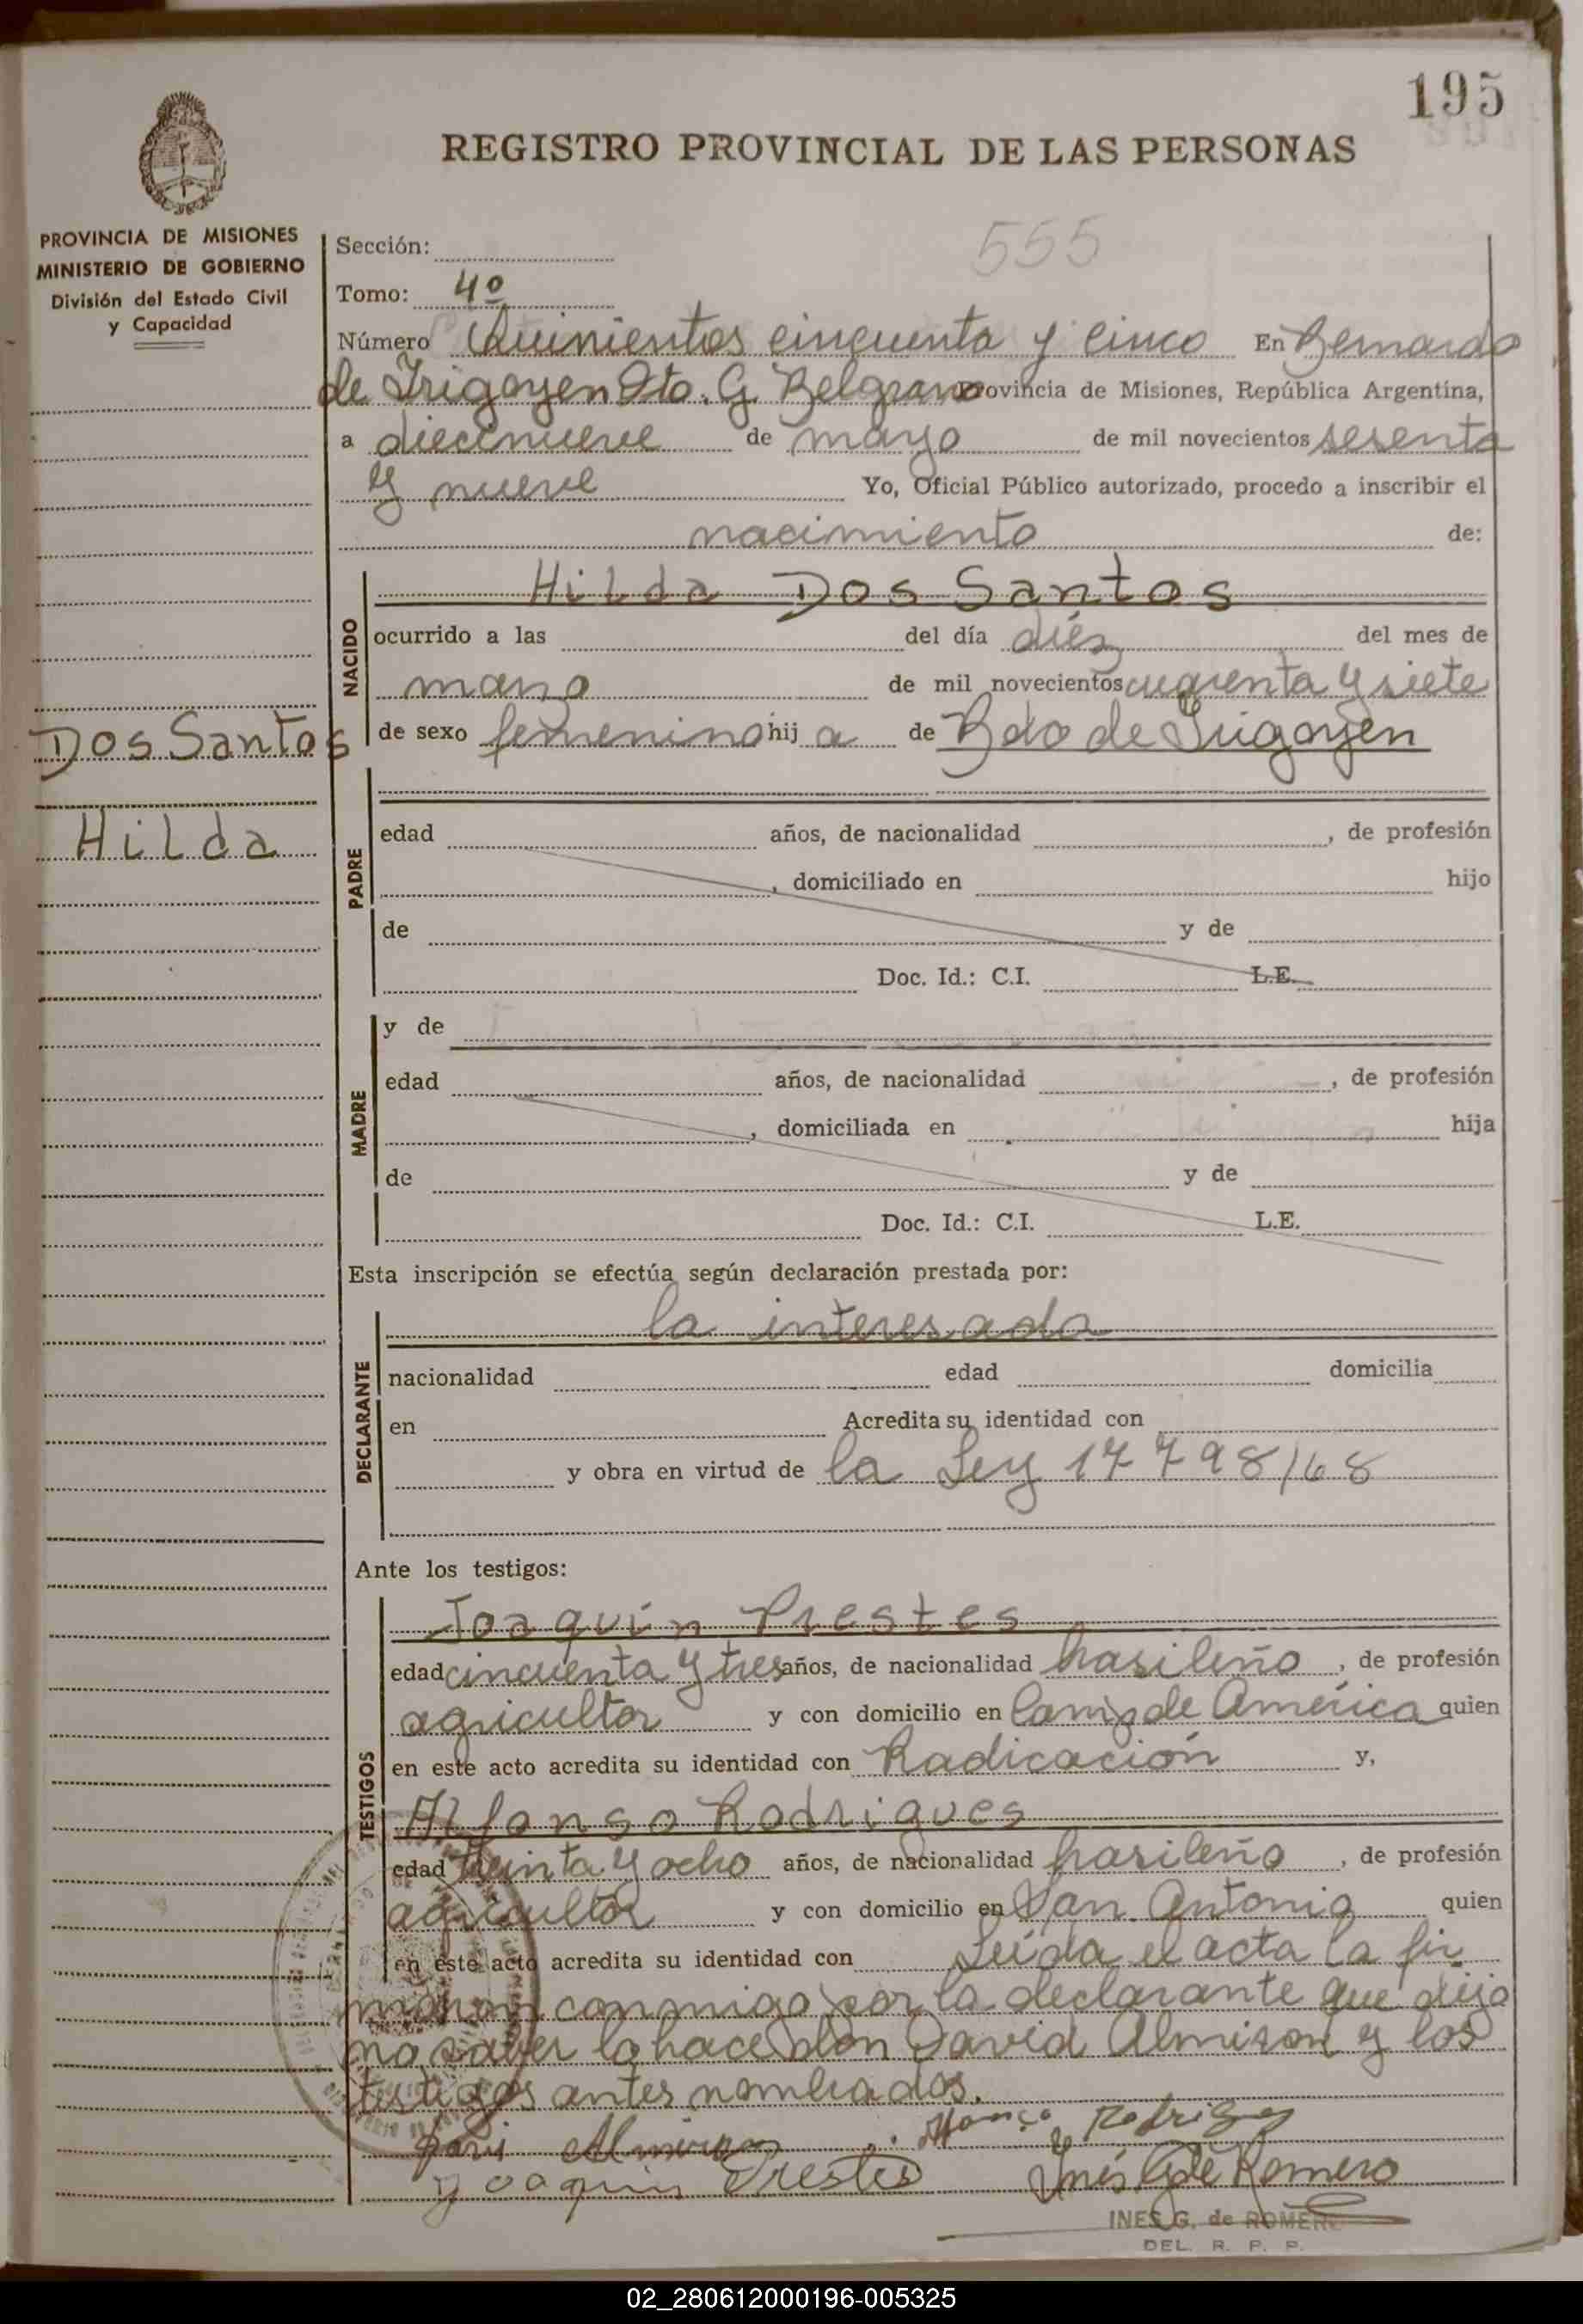 195
REGISTRO PROVINCIAL DE LAS PERSONAS
PROVINCIA DE MISIONES
MINISTERIO DE GOBIERNO
División del Estado Civil
y Capacidad
555
Sección:
Tomo: 4º
Número Quinientos cincuenta y cinco En Bernardo
de Irigoyen Dto. G. Belgrano Provincia de Misiones, República Argentina,
a diecinueve de mayo de mil novecientos sesenta
y nueve Yo, Oficial Público autorizado, procedo a inscribir el
nacimiento de:
NACIDO
Hilda Dos Santos
ocurrido a las del día diéz del mes de
marzo de mil novecientos cuarenta y siete
de sexo femenino hij a de Bdo de Irigoyen
Dos Santos
Hilda
PADRE
edad años, de nacionalidad , de profesión
, domiciliado en hijo
de y de
Doc. Id.: C.I. L.E.
MADRE
y de
edad años, de nacionalidad , de profesión
, domiciliada en hija
de y de
Doc. Id.: C.I. L.E.
Esta inscripción se efectúa según declaración prestada por:
DECLARANTE
la interesada
nacionalidad edad domicilia
en Acredita su identidad con
y obra en virtud de la Ley 17798/68
Ante los testigos:
TESTIGOS
Joaquín Prestes
edad cincuenta y tres años, de nacionalidad brasileño , de profesión
agricultor y con domicilio en de América quien
en este acto acredita su identidad con Radicación y,
Alfonso Rodrigues
edad treinta y ocho años, de nacionalidad brasileño , de profesión
agricultor y con domicilio en San Antonio quien
en este acto acredita su identidad con Leída el acta la fir
maron conmigo por la declarante que dijo
no saber lo hace don David Almiron y los
testigos antes nombrados.
Almiron Rodrigues
Joaquin Prestes Inés G de Romero
INES G. de ROMERO
DEL. R. P. P.
02_280612000196-005325